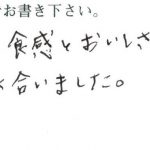 お書き下さい。
食感とおいしさ
く合いました。